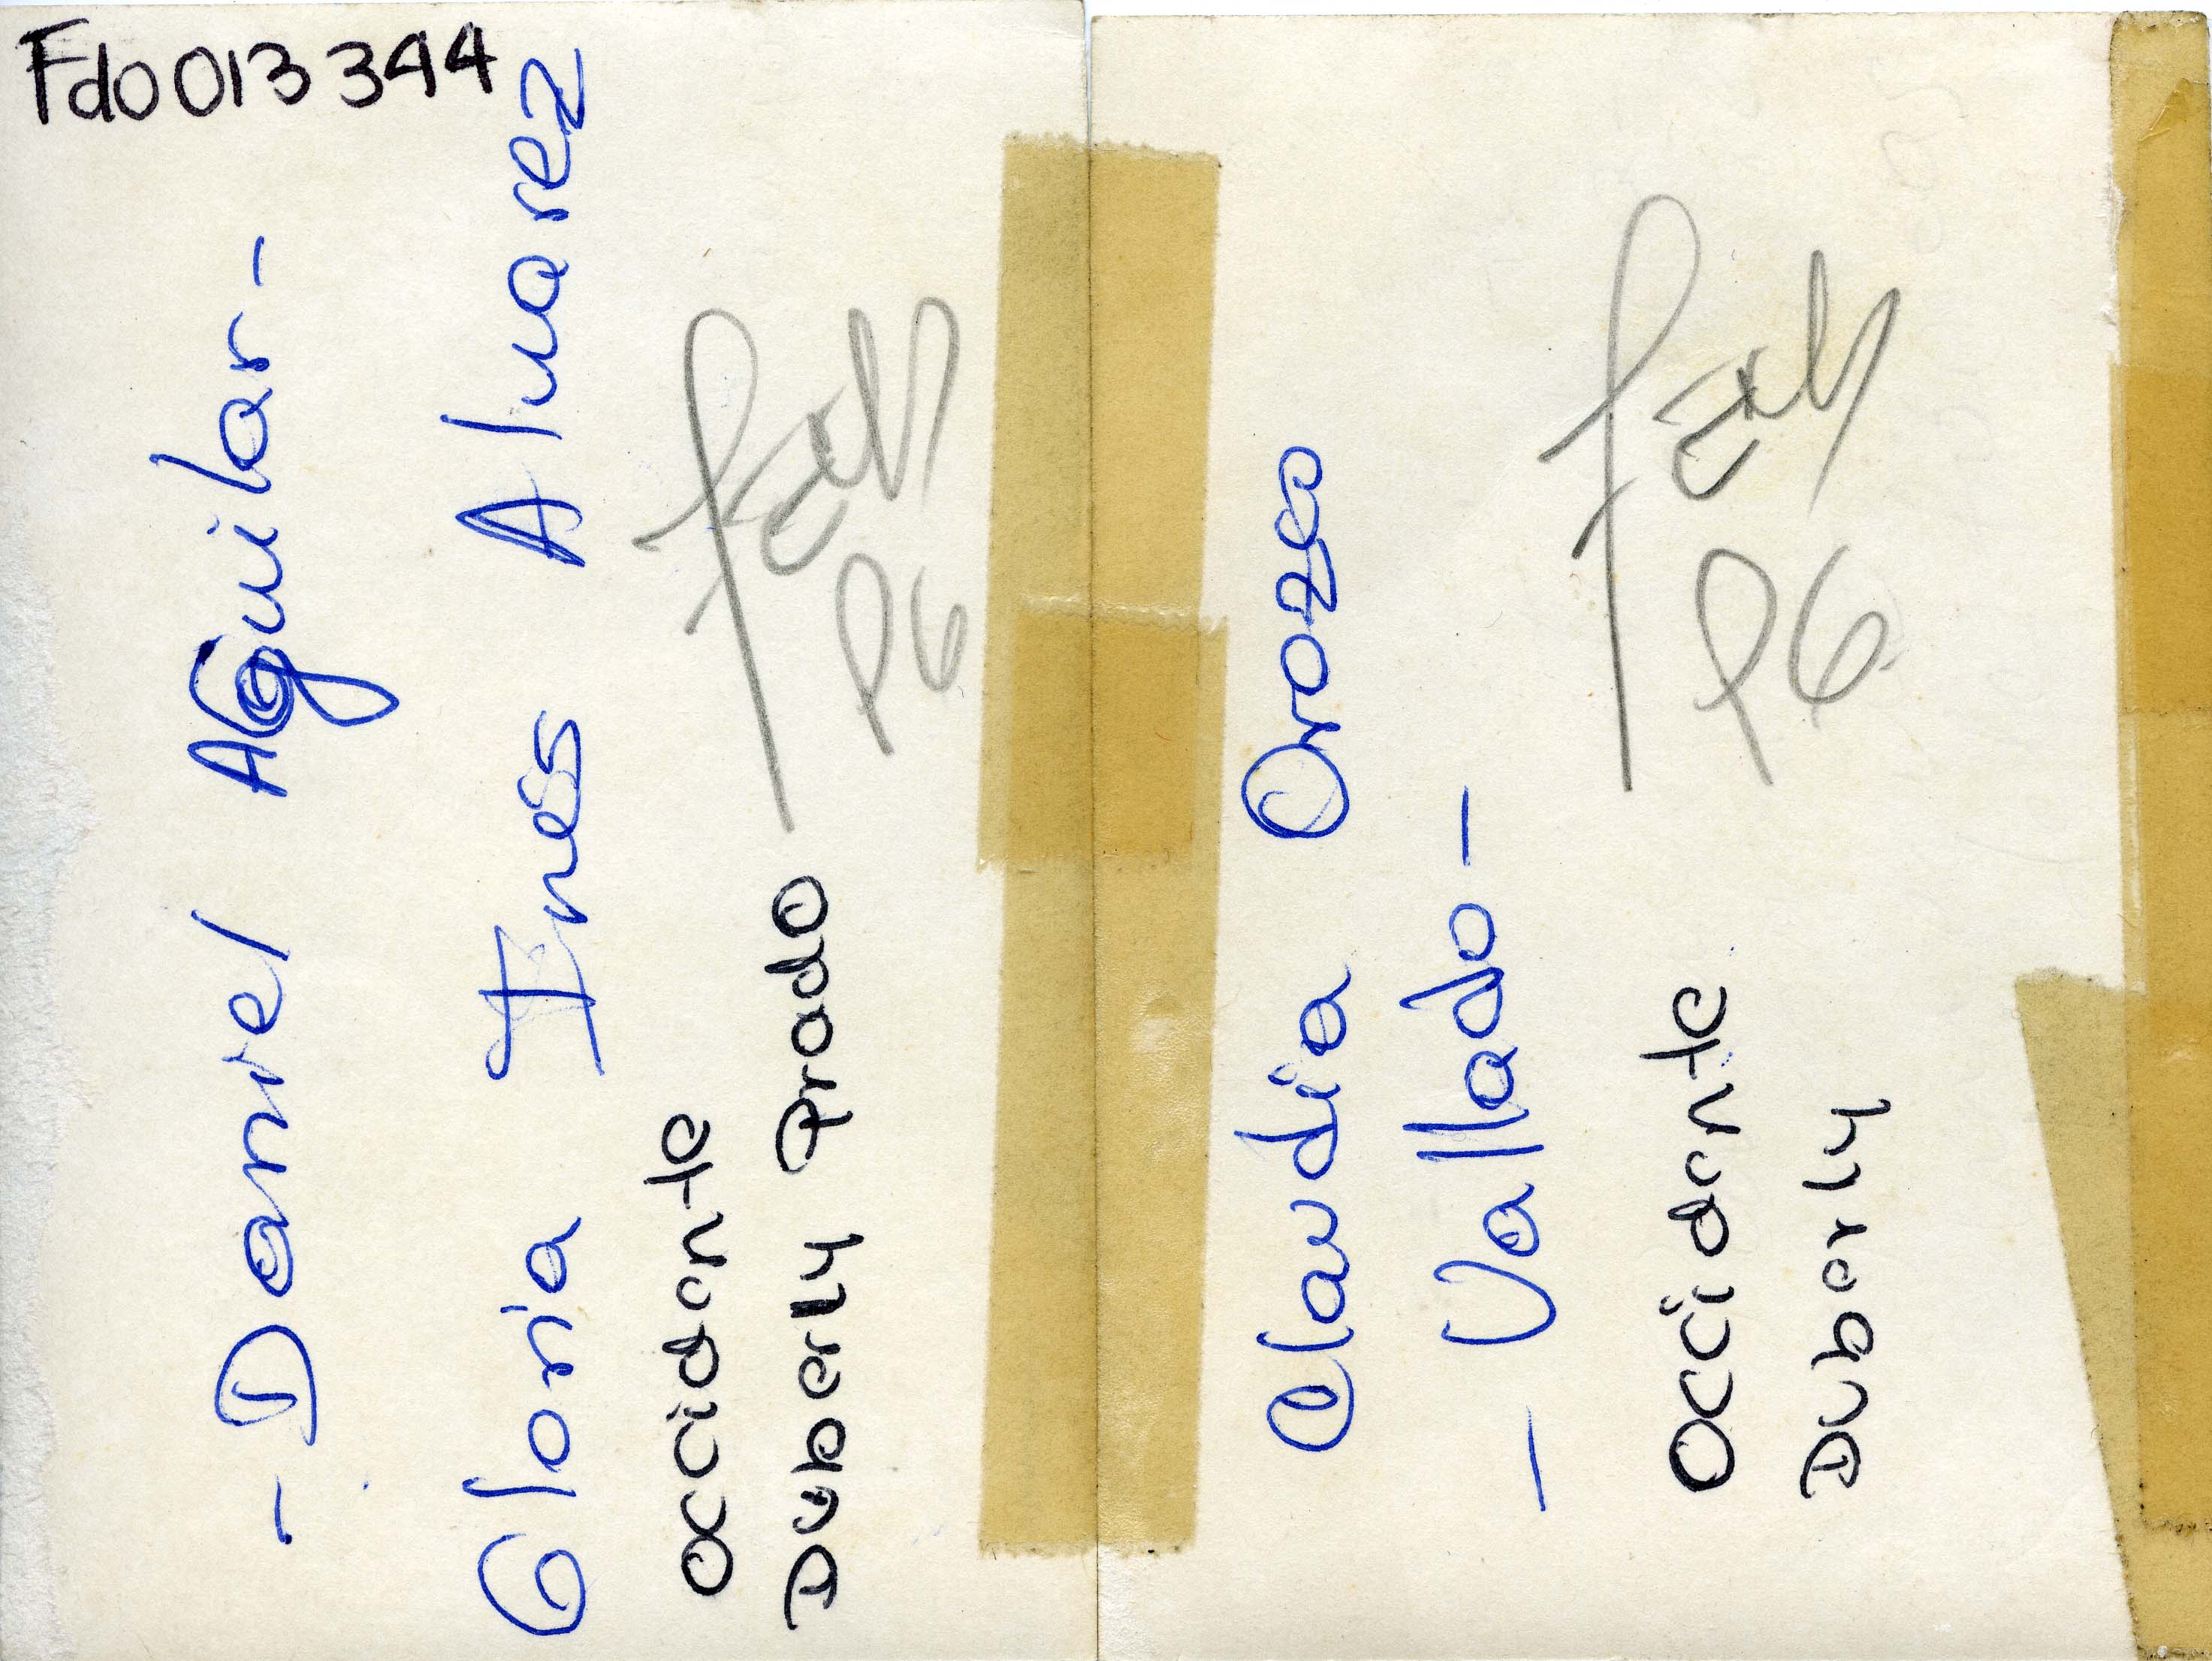 Fdo 013 344
- Daniel Aguilar -
Gloria Ines Alvarez
Occidente
Duberly Prado
P6
Claudia Orozco
- Vallado -
Occidente
Duberly
P6